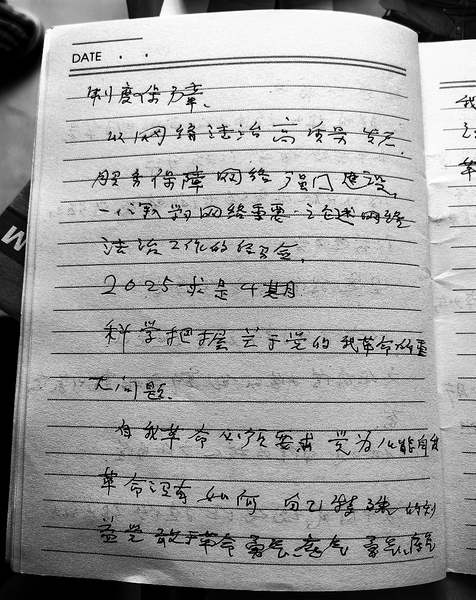 DATE
制度保障、
以网络法治高质量发展,
服务保障网络强国建设,
一认真学习网络重要 论述 网络
法治工作的 会,
2025 求是 4期
科学把握关于党的自我革命的重
大问题.
自我革命必须要求 党为什么能自我
革命没有 任何 自己特殊的利
益党敢于革命勇气,底气 勇气,底气
我